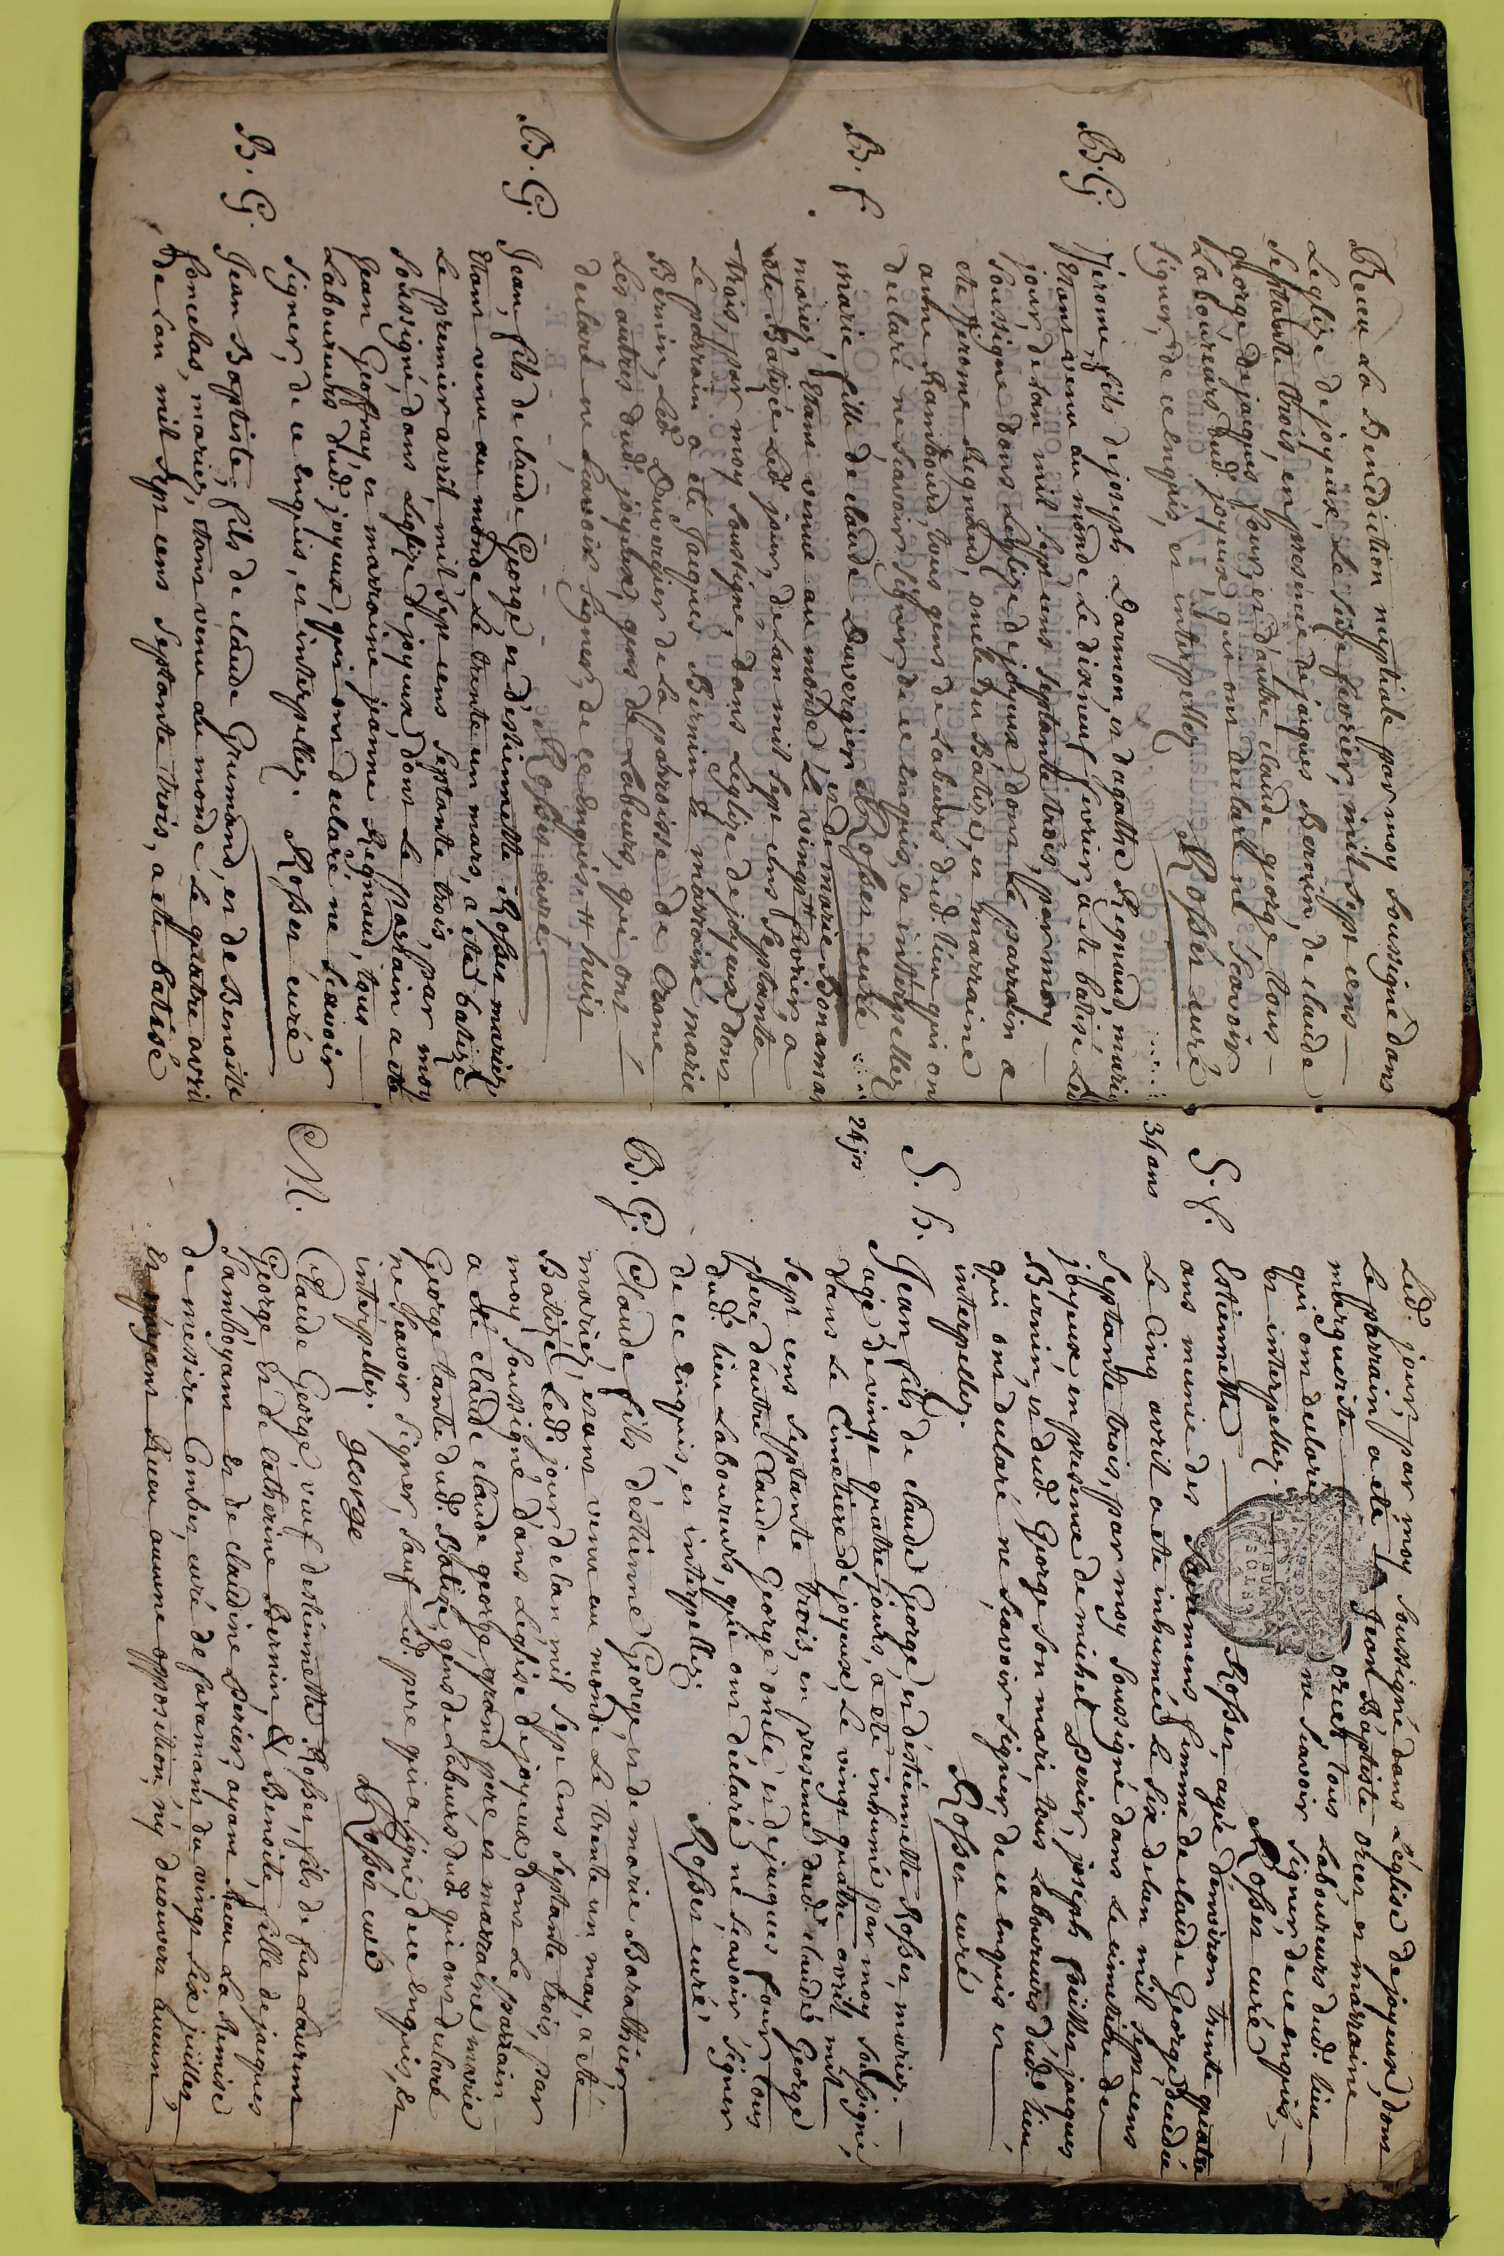 Receu la Benediction nuptiale par moy soussigné dans
Leglize de joyeux, Le seize fevrier, mil sept cens
septante trois, en presence de jaques Bernin, de claude
george de jaques four, et d'autre claude george tous
Laboureurs dud. joyeux, qui ont declaré ne sçavoir
signer, de ce enquis, et interpellez
Rosset curé
B. G.
Jérome, fils de joseph Dormon et d'agathe Regnaud, mariez
Etant venu au monde Le dixneuf fevrier, a eté batisé Led.
jour, de l'an mil sept cens septante trois, par moy
soussigné dans Leglize de joyeux dont Le parrain a
eté Jerome Regnaud, oncle du Batizé, et marraine
anne Rambourd, tous gens de Labeurs dud. lieu qui ont
declaré ne sçavoir signer, de ce enquis, et interpellez
Rosset curé
B. f.
marie fille de claude Duvergier et de marie Bonamas
mariez, Etant venue au monde, Le vingt fevrier, a
eté Batizée Led. jour, de L'an mil sept cens septante
trois, par moy soussigné, dans Leglize de joyeux dont
Le parrain a eté Jaques Bernin La marraine marie
Bernin, Led. Duvergier de La parroisse de Crane
Les autres dud. joyeux, gens de Labeurs, qui ont
declaré ne sçavoir signer, de ce enquis, # huit
Rosset curé
B. G.
Jean, fils de claude George et d'estiennette Rosset mariez,
Etant venu au monde Le trente un mars, a eté batizé
Le premier avril mil sept cens septante trois, par moy
soussigné, dans Leglize de joyeux, dont Le parrain a eté
Jean Geoffray, et marraine janne Regnaud, tous
Laboureurs dud. joyeux, qui ont declaré ne sçavoir
signer, de ce enquis, et interpellez. Rosset curé
B. G.
Jean Baptiste, fils de claude Grumond, et de Benoitte
Poncelas, mariez, etant venu au monde Le quatre avril
de L'an mil sept cens septante trois, a eté batisé
Led. jour, par moy soussigné dans L'église de joyeux, dont
Le parrain a eté Jean Baptiste orcet et marraine
marguerite orcet tous Laboureurs dud. lieu
qui ont declaré ne sçavoir signer, de ce enquis,
et interpellez. Rosset curé
S. f.
34 ans
Estiennette Rosset, agée d'environ trente quatre
ans munie des sacrements femme de claude George decedée
Le cinq avril a eté inhumée Le six de l'an mil sept cens
septante trois, par moy soussigné dans Le cimetiere de
joyeux en presence de michel Perier, joseph jaques
Bernin, et dud. George son mari, tous Laboureurs dud. lieu,
qui ont declaré ne sçavoir signer, de ce enquis et
interpellez. Rosset curé
S. h.
24 jrs
Jean fils de claude George, et d'estiennette Rosset, mariez
agé de vingt quatre jours, a eté inhumé par moy soussigné,
dans Le Cimetiere de joyeux, Le vingt quatre avril mil
sept cens septante trois, en presence dud. claude George
Pere d'autre Claude George oncle et de jaques four tous
dud. lieu Laboureurs, qui ont declaré ne sçavoir signer
de ce enquis, et interpellez. Rosset curé
B. G.
Claude fils d'estienne George, et de marie Barathier
mariez, etant venu au monde Le trente un may, a eté
Batizé Led. jour de lan mil sept cens septante trois, par
moy soussigné dans Léglise de joyeux, dont Le parrain
a eté claude claude george, grand pere et marraine marie
George tante dud. Batizé, gens de Labeurs dud. qui ont declaré
ne sçavoir signer, sauf Led. pere qui a signé de ce enquis, et
interpellez. george Rosset curé
M.
Claude George veuf d'estiennette Rosset, fils de fut Laurent
George Et de Catherine Bernin, & Benoite, fille de jaques
Pamboyant et de claudine Perier, ayant Receu La Remise
de messire Combet curé de faramant du vingt six juillet,
Et n'ayant Receu aucune opposition, n'y decouvert aucun,